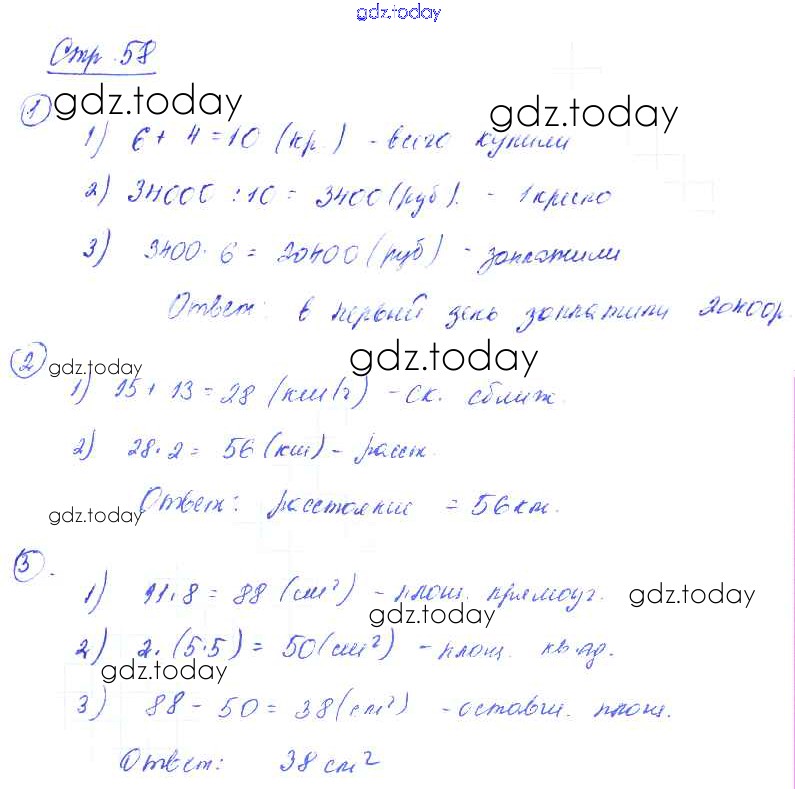 gdz.today
Стр. 58
1 gdz.today gdz.today
1) 6 + 4 = 10 (кр.) - всего купили
2) 34000 : 10 = 3400 (руб). - 1 кресло
3) 3400 · 6 = 20400 (руб) - заплатили
Ответ: в первый день заплатили 20400р.
2 gdz.today gdz.today
1) 15 + 13 = 28 (км/ч) - ск. сближ.
2) 28 · 2 = 56 (км) - расст.
Ответ: расстояние = 56 км.
gdz.today
3.
1) 11 · 8 = 88 (см²) - площ. прямоуг.
gdz.today gdz.today
2) 2 · (5 · 5) = 50 (см²) - площ. кв-ад.
gdz.today
3) 88 - 50 = 38 (см²) - оставш. площ.
Ответ: 38 см²